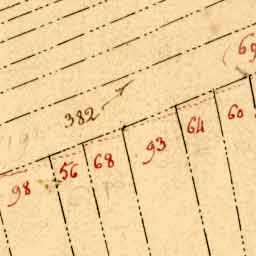 382
98 56 68 93 64 60